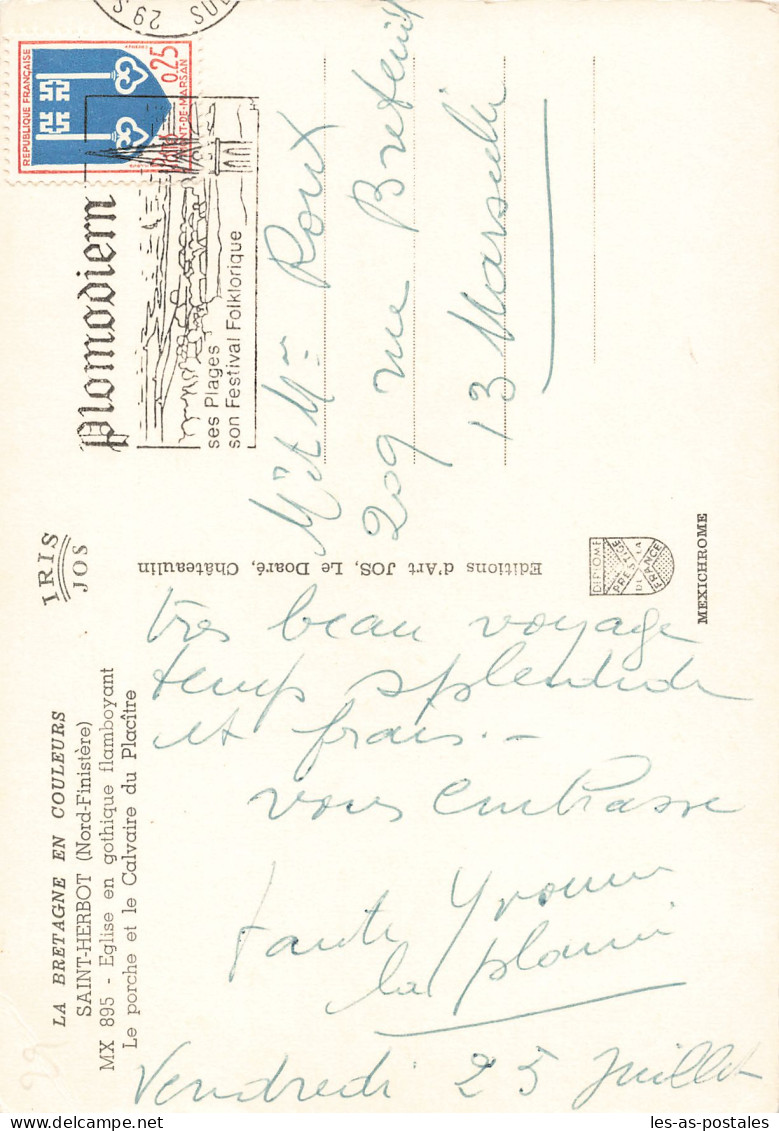 LA BRETAGNE EN COULEURS
SAINT-HERBOT (Nord-Finistère)
MX 895 - Eglise en gothique flamboyant
Le porche et le Calvaire du Placître
IRIS
JOS
très beau voyage
temps splendide
et frais. -
vous embrasse
tante Yvonne
la
Vendredi 25 Juillet
Editions d'Art JOS, Le Doaré, Châteaulin
DIPLOME
PRESTIGE
DE LA
FRANCE
MEXICHROME
29
REPUBLIQUE FRANÇAISE
0,25
MONT-DE-MARSAN
Plomodiern
ses Plages
son Festival Folklorique
Mr et Mme Roux
209 rue Breteuil
13 Marseille
www.les-as-postales.com